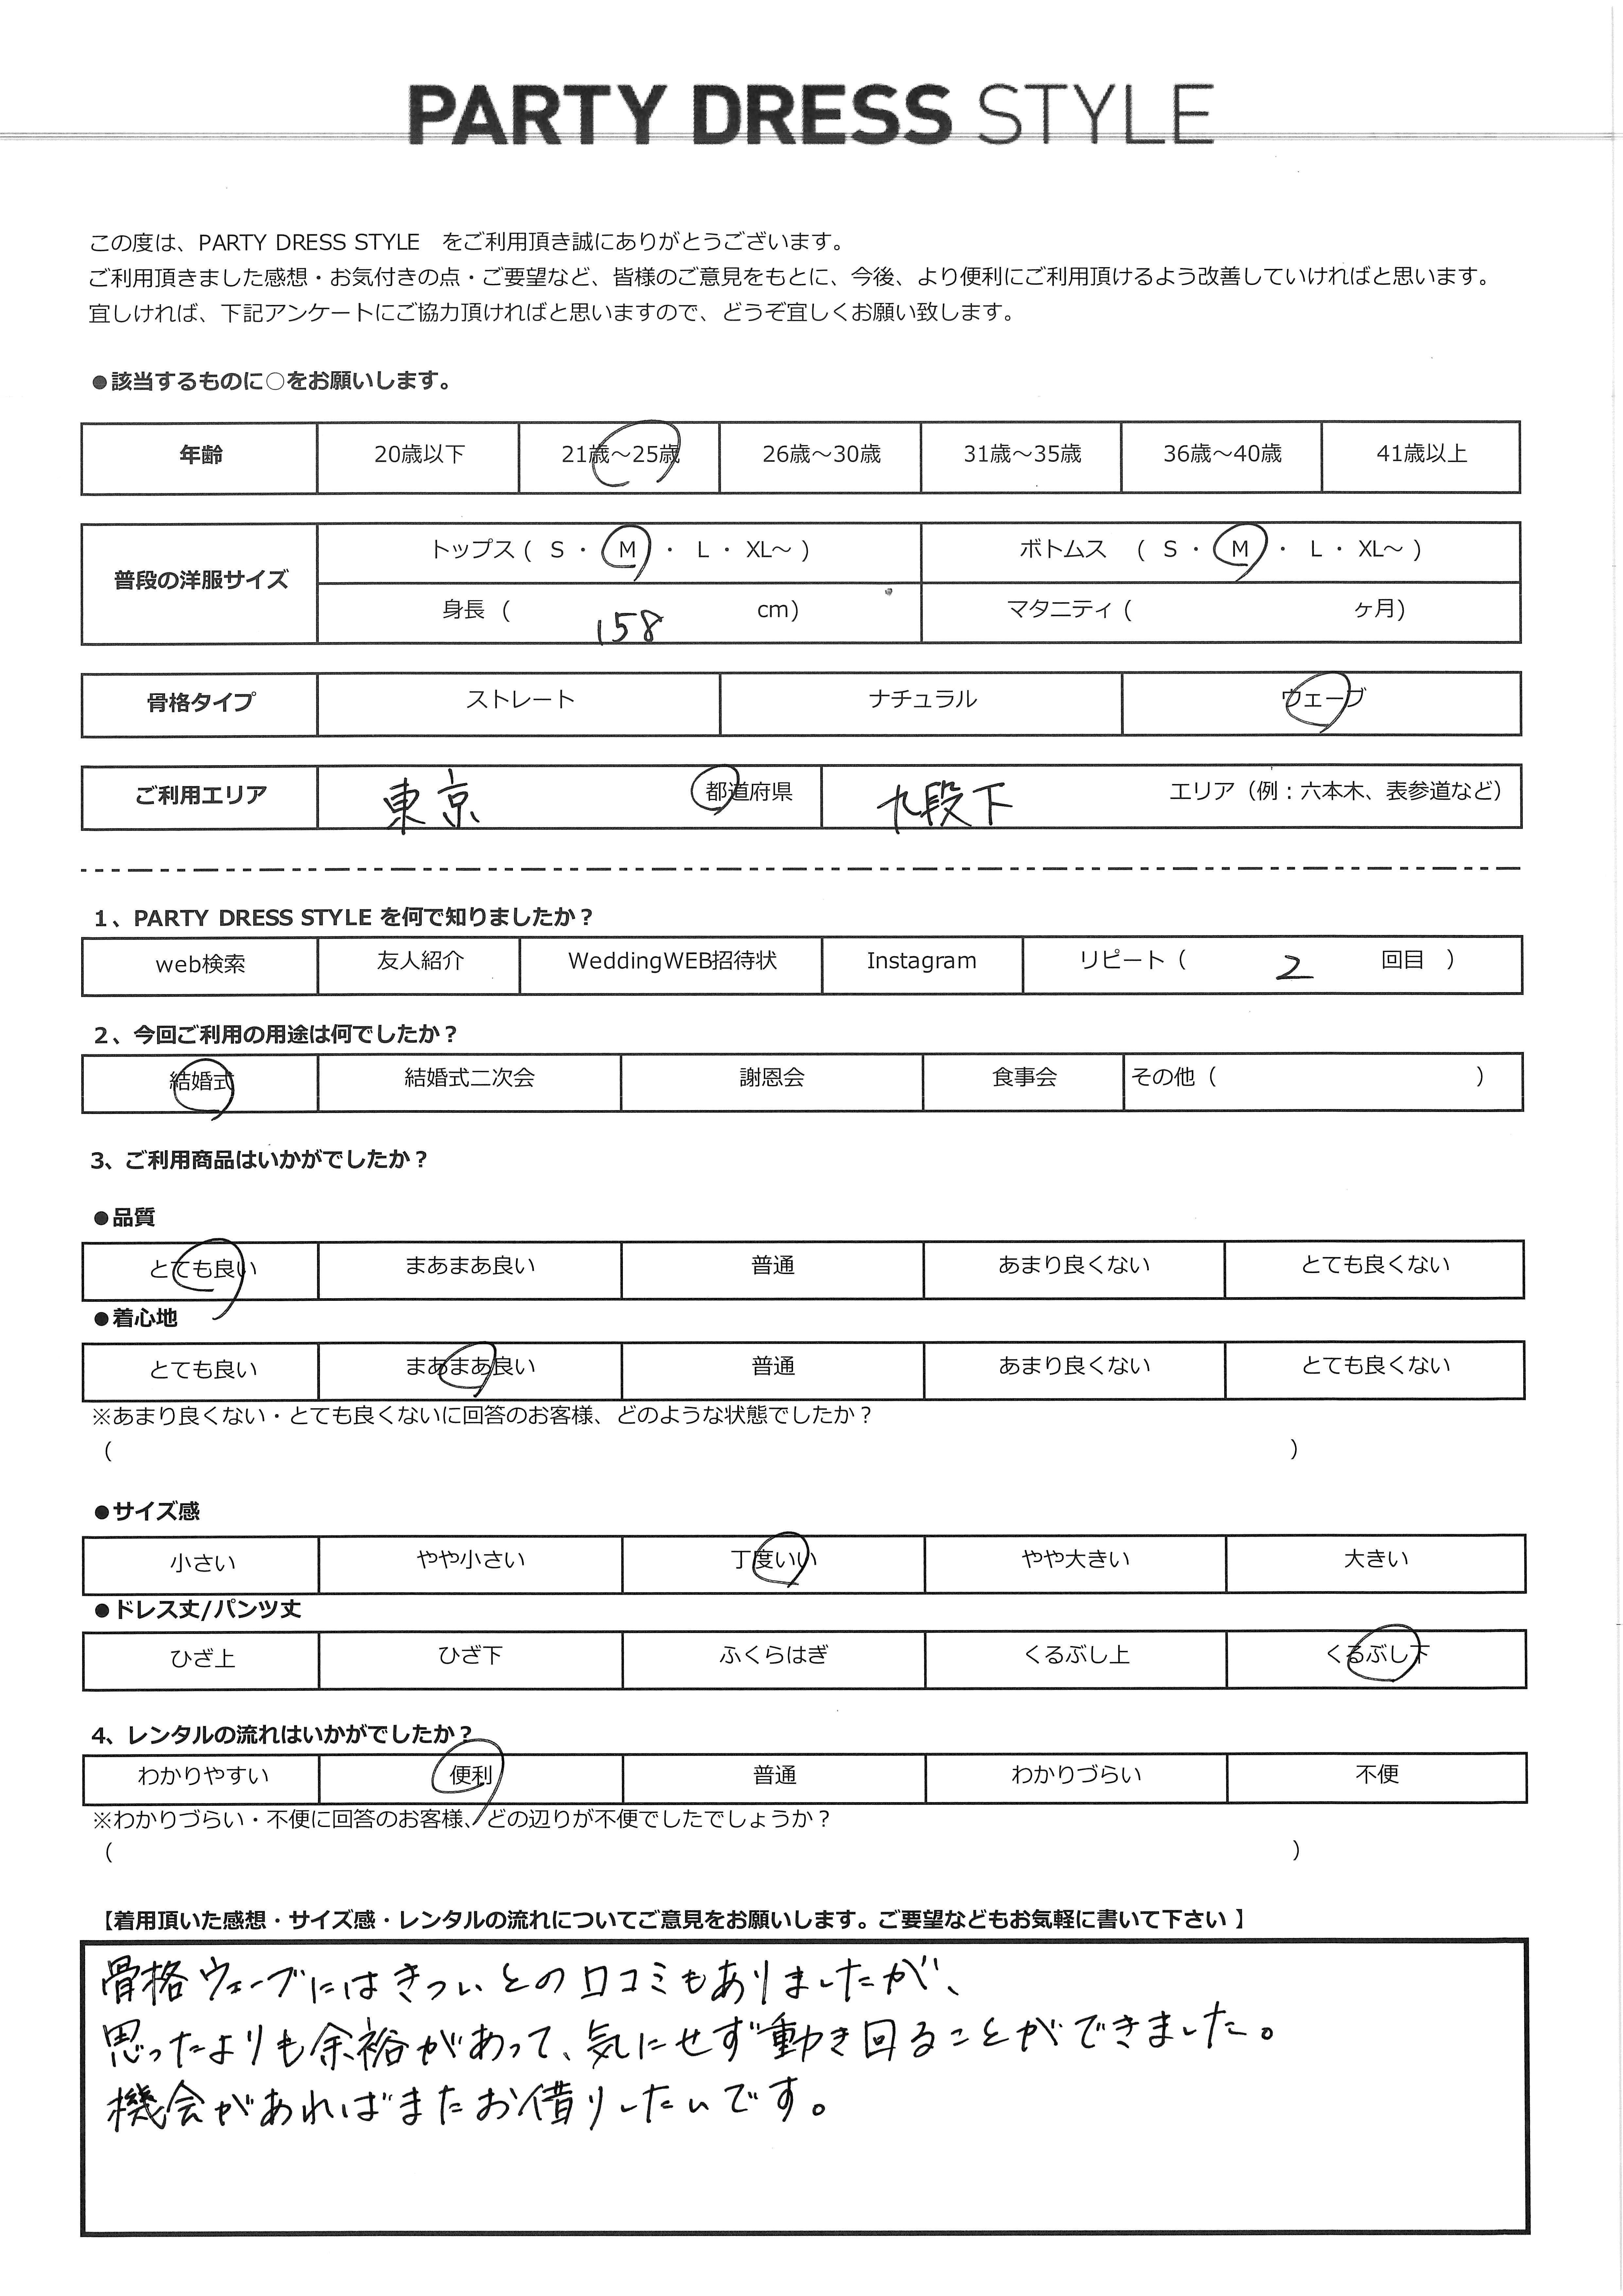 PARTY DRESS STYLE
この度は、PARTY DRESS STYLE　をご利用頂き誠にありがとうございます。
ご利用頂きました感想・お気付きの点・ご要望など、皆様のご意見をもとに、今後、より便利にご利用頂けるよう改善していければと思います。
宜しければ、下記アンケートにご協力頂ければと思いますので、どうぞ宜しくお願い致します。
●該当するものに○をお願いします。
年齢 20歳以下 21歳～25歳 26歳～30歳 31歳～35歳 36歳～40歳 41歳以上
普段の洋服サイズ
トップス ( S ・ M ・ L ・ XL～ ) ボトムス ( S ・ M ・ L ・ XL～ )
身長 ( 158 cm) マタニティ ( ヶ月)
骨格タイプ ストレート ナチュラル ウェーブ
ご利用エリア 東京 都道府県 九段下 エリア（例：六本木、表参道など）
1、PARTY DRESS STYLE を何で知りましたか？
web検索 友人紹介 WeddingWEB招待状 Instagram リピート（ 2 回目 ）
2、今回ご利用の用途は何でしたか？
結婚式 結婚式二次会 謝恩会 食事会 その他（ ）
3、ご利用商品はいかがでしたか？
●品質
とても良い まあまあ良い 普通 あまり良くない とても良くない
●着心地
とても良い まあまあ良い 普通 あまり良くない とても良くない
※あまり良くない・とても良くないに回答のお客様、どのような状態でしたか？
（ ）
●サイズ感
小さい やや小さい 丁度いい やや大きい 大きい
●ドレス丈/パンツ丈
ひざ上 ひざ下 ふくらはぎ くるぶし上 くるぶし下
4、レンタルの流れはいかがでしたか？
わかりやすい 便利 普通 わかりづらい 不便
※わかりづらい・不便に回答のお客様、どの辺りが不便でしたでしょうか？
（ ）
【着用頂いた感想・サイズ感・レンタルの流れについてご意見をお願いします。ご要望などもお気軽に書いて下さい 】
骨格ウェーブにはきついとの口コミもありましたが、
思ったよりも余裕があって、気にせず動き回ることができました。
機会があればまたお借りしたいです。